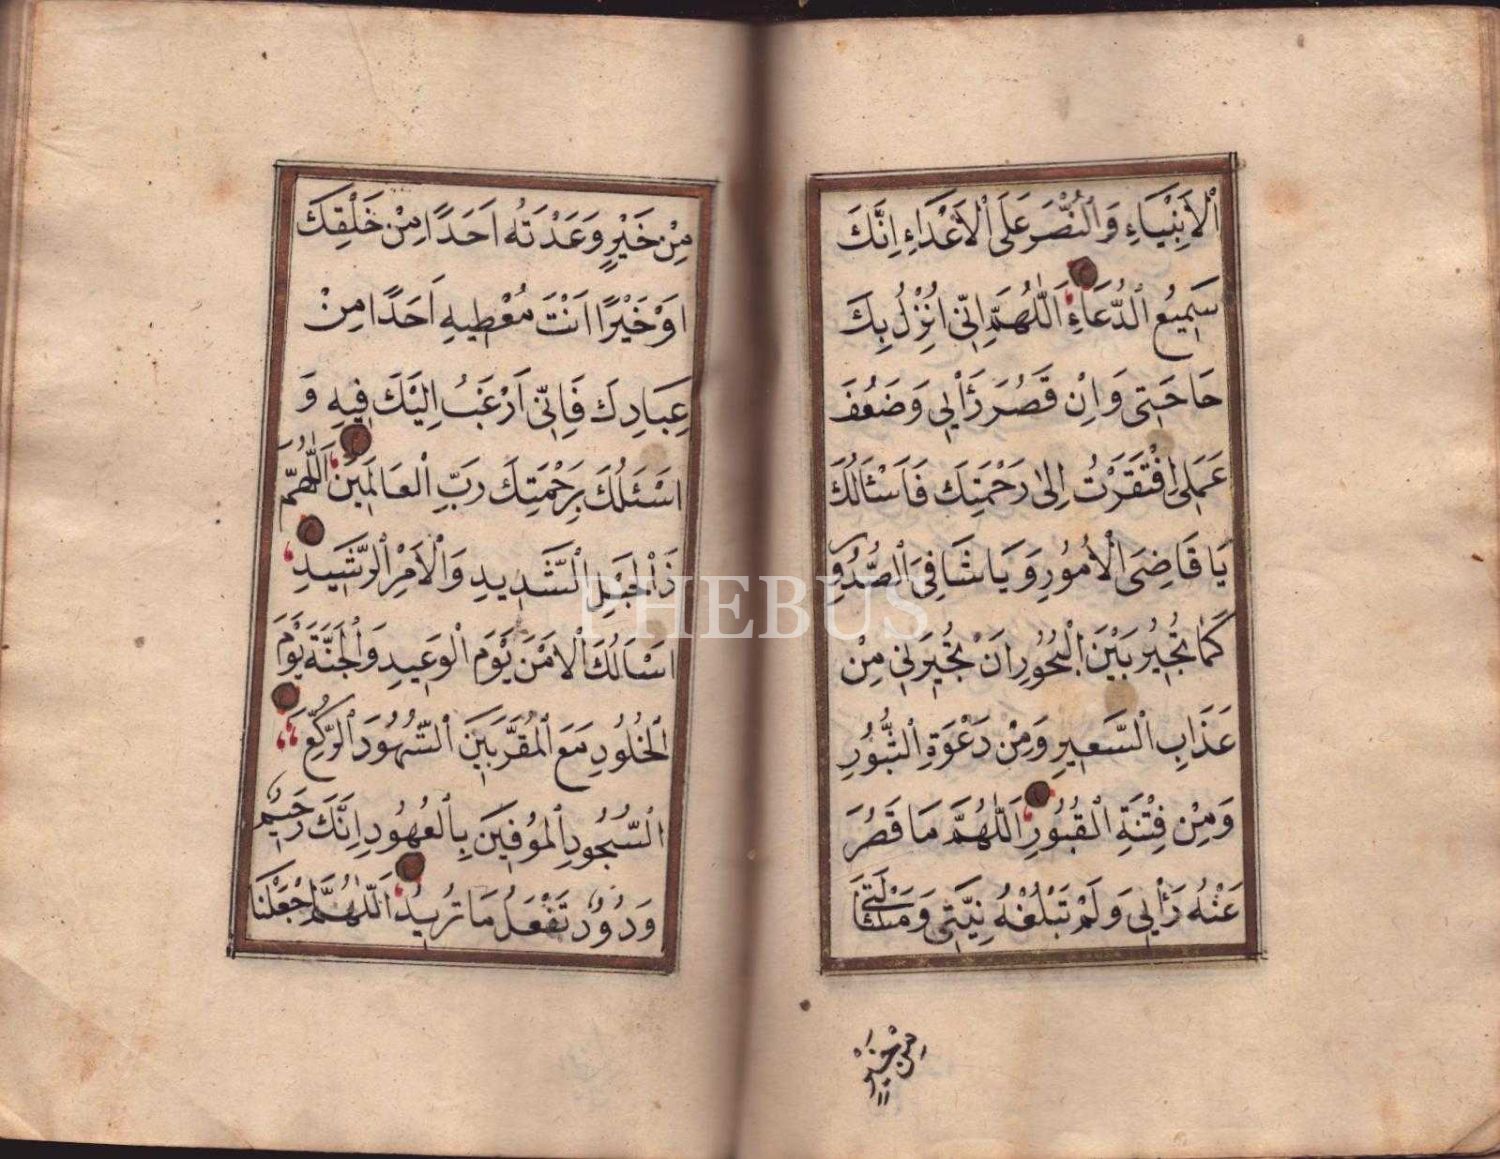 ٱلْأَنْبِيَاءِ وَٱلنَّصْرَ عَلَى ٱلْأَعْدَاءِ اِنَّكَ
سَمِيعُ ٱلدُّعَاءِ اَللّٰهُمَّ اِنِّى اُنْزِلُ بِكَ
حَاجَتِى وَاِنْ قَصُرَ رَأْيِي وَضَعُفَ
عَمَلِى اِفْتَقَرْتُ اِلىٰ رَحْمَتِكَ فَاَسْئَالُكَ
يَا قَاضِىَ ٱلْأُمُورِ وَيَا شَافِىَ ٱلصُّدُورِ
كَمَا تُجِيرُ بَيْنَ ٱلْبُحُورِ اَنْ تُجِيرَنِى مِنْ
عَذَابِ ٱلسَّعِيرِ وَمِنْ دَعْوَةِ ٱلثُّبُورِ
وَمِنْ فِتْنَةِ ٱلْقُبُورِ اَللّٰهُمَّ مَا قَصُرَ
عَنْهُ رَأْيِي وَلَمْ تَبْلُغْهُ نِيَّتِى وَمَسْئَلَتِى
من خير
مِنْ خَيْرٍ وَعَدْتَهُ اَحَدًا مِنْ خَلْقِكَ
اَوْ خَيْرًا اَنْتَ مُعْطِيهِ اَحَدًا مِنْ
عِبَادِكَ فَاِنِّى اَرْغَبُ اِلَيْكَ فِيهِ وَ
اَسْئَلُكَ بِرَحْمَتِكَ رَبِّ ٱلْعَالَمِينَ اَللّٰهُمَّ
ذَٱلْحَبْلِ ٱلشَّدِيدِ وَٱلْاَمْرِ ٱلرَّشِيدِ
اَسْاَلُكَ ٱلْاَمْنَ يَوْمَ ٱلْوَعِيدِ وَٱلْجَنَّةَ يَوْمَ
ٱلْخُلُودِ مَعَ ٱلْمُقَرَّبِينَ ٱلشُّهُودِ ٱلرُّكَّعِ
ٱلسُّجُودِ ٱلْمُوفِينَ بِٱلْعُهُودِ اِنَّكَ رَحِيمٌ
وَدُودٌ تَفْعَلُ مَا تُرِيدُ اَللّٰهُمَّ اجْعَلْنَا
PHEBUS